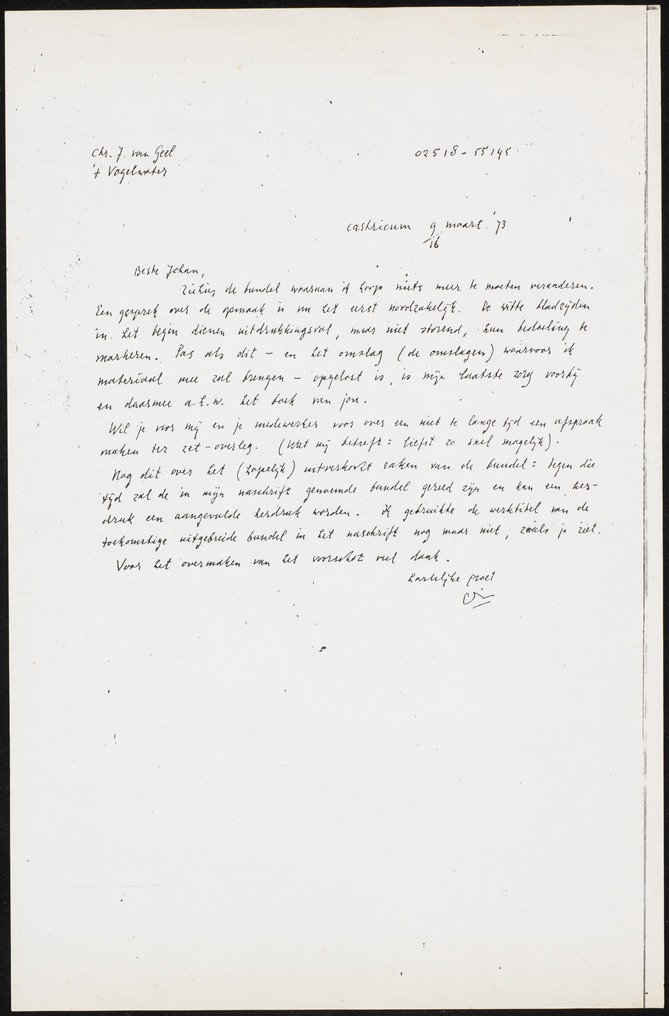 Chr. J. van Geel
't Vogelwater
02518-55145
Castricum 9 maart '73
16
Beste Johan,
Ziehier de bundel waaraan ik hoop niets meer te moeten veranderen.
Een gesprek over de opmaak is nu het eerst noodzakelijk. De witte bladzijden
in het begin dienen uitdrukkingsvol, maar niet storend, hun bedoeling te
markeren. Pas als dit – en het omslag (de omslagen) waarvoor ik
materiaal mee zal brengen – opgelost is, is mijn laatste zorg voorbij
en daarmee a.h.w. het boek van jou.
Wil je voor mij en je medewerker voor over een niet te lange tijd een afspraak
maken ter zet-overleg. (Wat mij betreft: liefst zo snel mogelijk).
Nog dit over het (hopelijk) uitverkocht raken van de bundel: tegen die
tijd zal de in mijn naschrift genoemde bundel gereed zijn en kan een her-
druk een aangevulde herdruk worden. Ik gebruikte de werktitel van de
toekomstige uitgebreide bundel in het naschrift nog maar niet, zoals je ziet.
Voor het overmaken van het voorschot veel dank.
Hartelijke groet